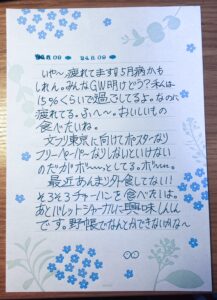 24.5.09 24.5.09
いや〜疲れてます。5月病かも
しれん。みんなGW明けどう?私は
15%くらいで過ごしてるよ。なのに
疲れてる。ふへ〜。おいしいもの
食べたいね。
文フリ東京に向けてポスターなり
フリーペーパーなりしないといけない
のだがボーーっとしてる。ボーー。
最近あんまり外食してない!
そろそろチャーハンを食べたいよ。
あとバレットジャーナルに興味しんしん
です。野帳でなんとかできないかな〜